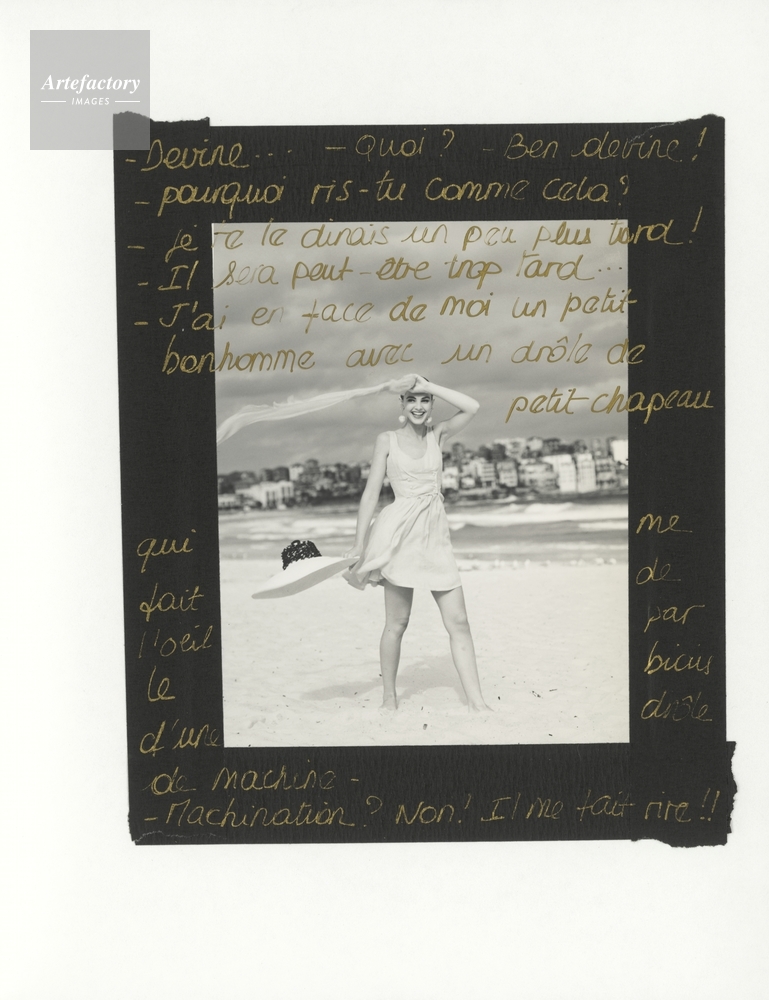 Artefactory
IMAGES
-Devine... -Quoi? -Ben devine!
-pourquoi ris-tu comme cela?
- je te le dirais un peu plus tard!
-Il sera peut-être trop tard...
-J'ai en face de moi un petit
bonhomme avec un drôle de
petit chapeau
qui me
fait de
l'oeil par
le biais
d'une drôle
de machine-
-Machination? Non! Il me fait rire!!